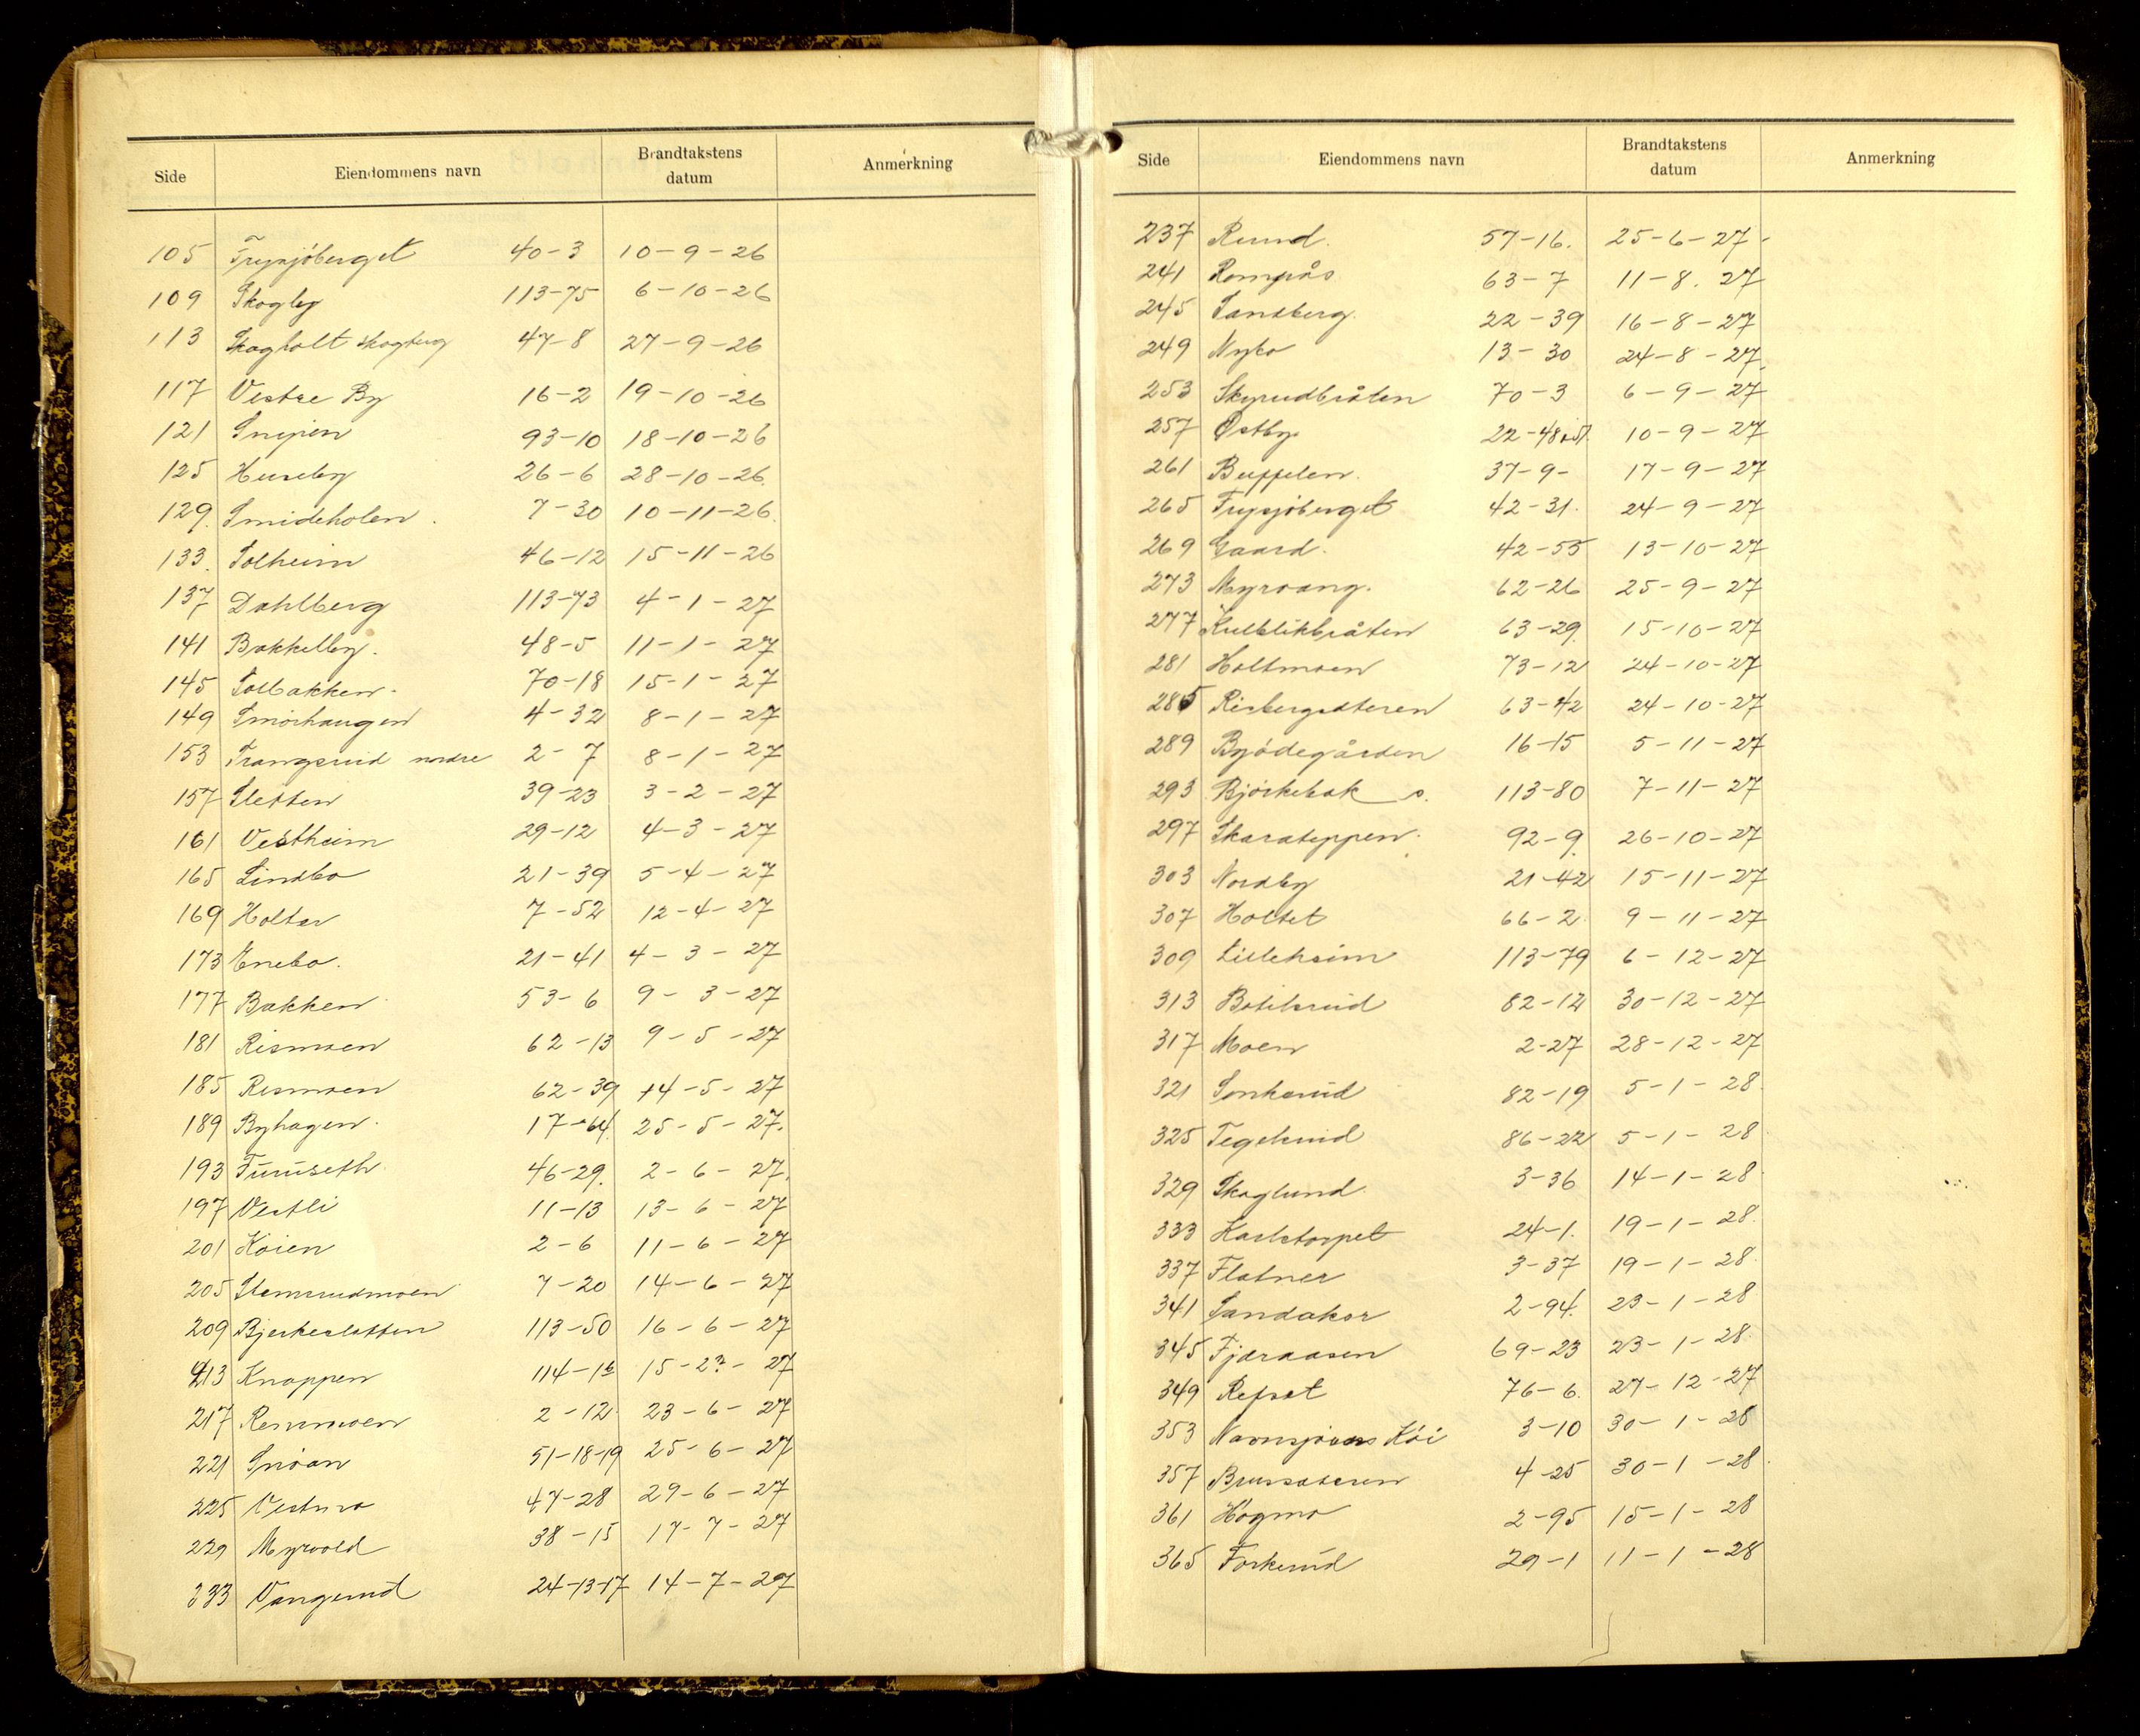 Side Eiendommens navn Brandtakstens datum Anmerkning
105 Frysjöberget 40-3 10-9-26
109 Skogley 113-75 6-10-26
113 Skogholt Skogberg 47-8 27-9-26
117 Vestre By 16-2 19-10-26
121 Snipen 93-10 18-10-26
125 Huseby 26-6 28-10-26.
129. Smideholen. 7-30 10-11-26.
133. Solheim 46-12 15-11-26
137 Dahlberg 113-73 4-1-27
141 Bakkelby. 48-5 11-1-27
145 Solbakken. 70-18 15-1-27
149 Smørhaugen 4-32 8-1-27
153 Trangsrud nordre 2-7 8-1-27
157 Sletten 39-23 3-2-27
161 Vestheim 29-12 4-3-27
165 Lindbo 21-39 5-4-27
169 Holter 7-52 12-4-27
173 Enebo. 21-41 4-3-27
177 Bakken 53-6 9-3-27
181 Rismoen 62-13 9-5-27
185 Rismoen 62-39 14-5-27
189 Byhagen. 17-64. 25-5-27.
193 Furuseth 46-29. 2-6-27.
197 Vestli 11-13 13-6-27
201 Köien 2-6 11-6-27
205 Stemsrudmoen 7-20 14-6-27
209 Bjerkesletten 113-50 16-6-27
213 Knappen 114-1b 15-2?-27
217 Rensmoen 2-12. 23-6-27
221 Snöan 51-18-19 25-6-27
225 Vestmo 47-28 29-6-27
229 Myrvold 38-15 17-7-27
233 Vangerud 24-13-17 14-7-27
Side Eiendommens navn Brandtakstens datum Anmerkning
237 Rund. 57-16. 25-6-27.
241 Rompås 63-7 11-8.27
245 Sandberg. 22-39 16-8-27
249 Nybo 13-30 24-8-27.
253 Skyrudbråten 70-3 6-9-27
257 Østby. 22-48 51. 10-9-27
261 Buffelen. 37-9- 17-9-27
265 Frysjöberget 42-31. 24-9-27
269 Gaard. 42-55 13-10-27
273 Myrvang. 62-26 25-9-27
277 Kulblikbråten 63-29. 15-10-27
281 Holtmoen 73-12 24-10-27
285 Risbergsæteren 63-42 24-10-27
289 Byödegården 16-15 5-11-27
293 Björkebak s. 113-80 7-11-27
297 Skarateppen. 92-9. 26-10-27
303 Nordby 21-42 15-11-27
307 Holtet 66-2 9-11-27
309 Lilleheim 113-79 6-12-27
313 Botilsrud 82-12 30-12-27
317 Moen 2-27 28-12-27
321 Sonkerud 82-19 5-1-28.
325 Tegelsrud 86-22 5-1-28
329 Skoglund 3-36 14-1-28.
333 Karlstorpet 24-1. 19-1-28.
337 Flatner 3-37 19-1-28.
341 Sandaker 2-94. 23-1-28
345 Fjæraasen 69-23 23-1-28.
349 Refset 76-6. 27-12-27
353 Navnsjöens Köi 3-10 30-1-28
357 Brussæteren 4-25 30-1-28.
361 Högmo 2-95 15-1-28
365 Forkerud 29-1 11-1-28